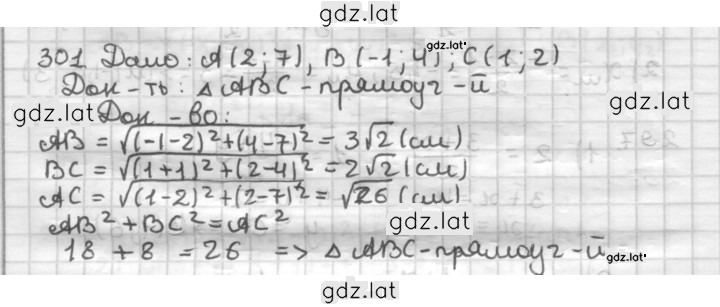 gdz.lat
301. Дано: A(2;7), B(-1;4), C(1;2)
gdz.lat
Док-ть: △ABC - прямоуг-й
gdz.lat
gdz.lat Док-во:
AB = √((-1-2)²+(4-7)²) = 3√2 (см)
BC = √((1+1)²+(2-4)²) = 2√2 (см)
gdz.lat
AC = √((1-2)²+(2-7)²) = √26 (см)
AB²+BC²=AC²
gdz.lat
18 + 8 = 26 => △ABC - прямоуг-й
gdz.lat
gdz.lat